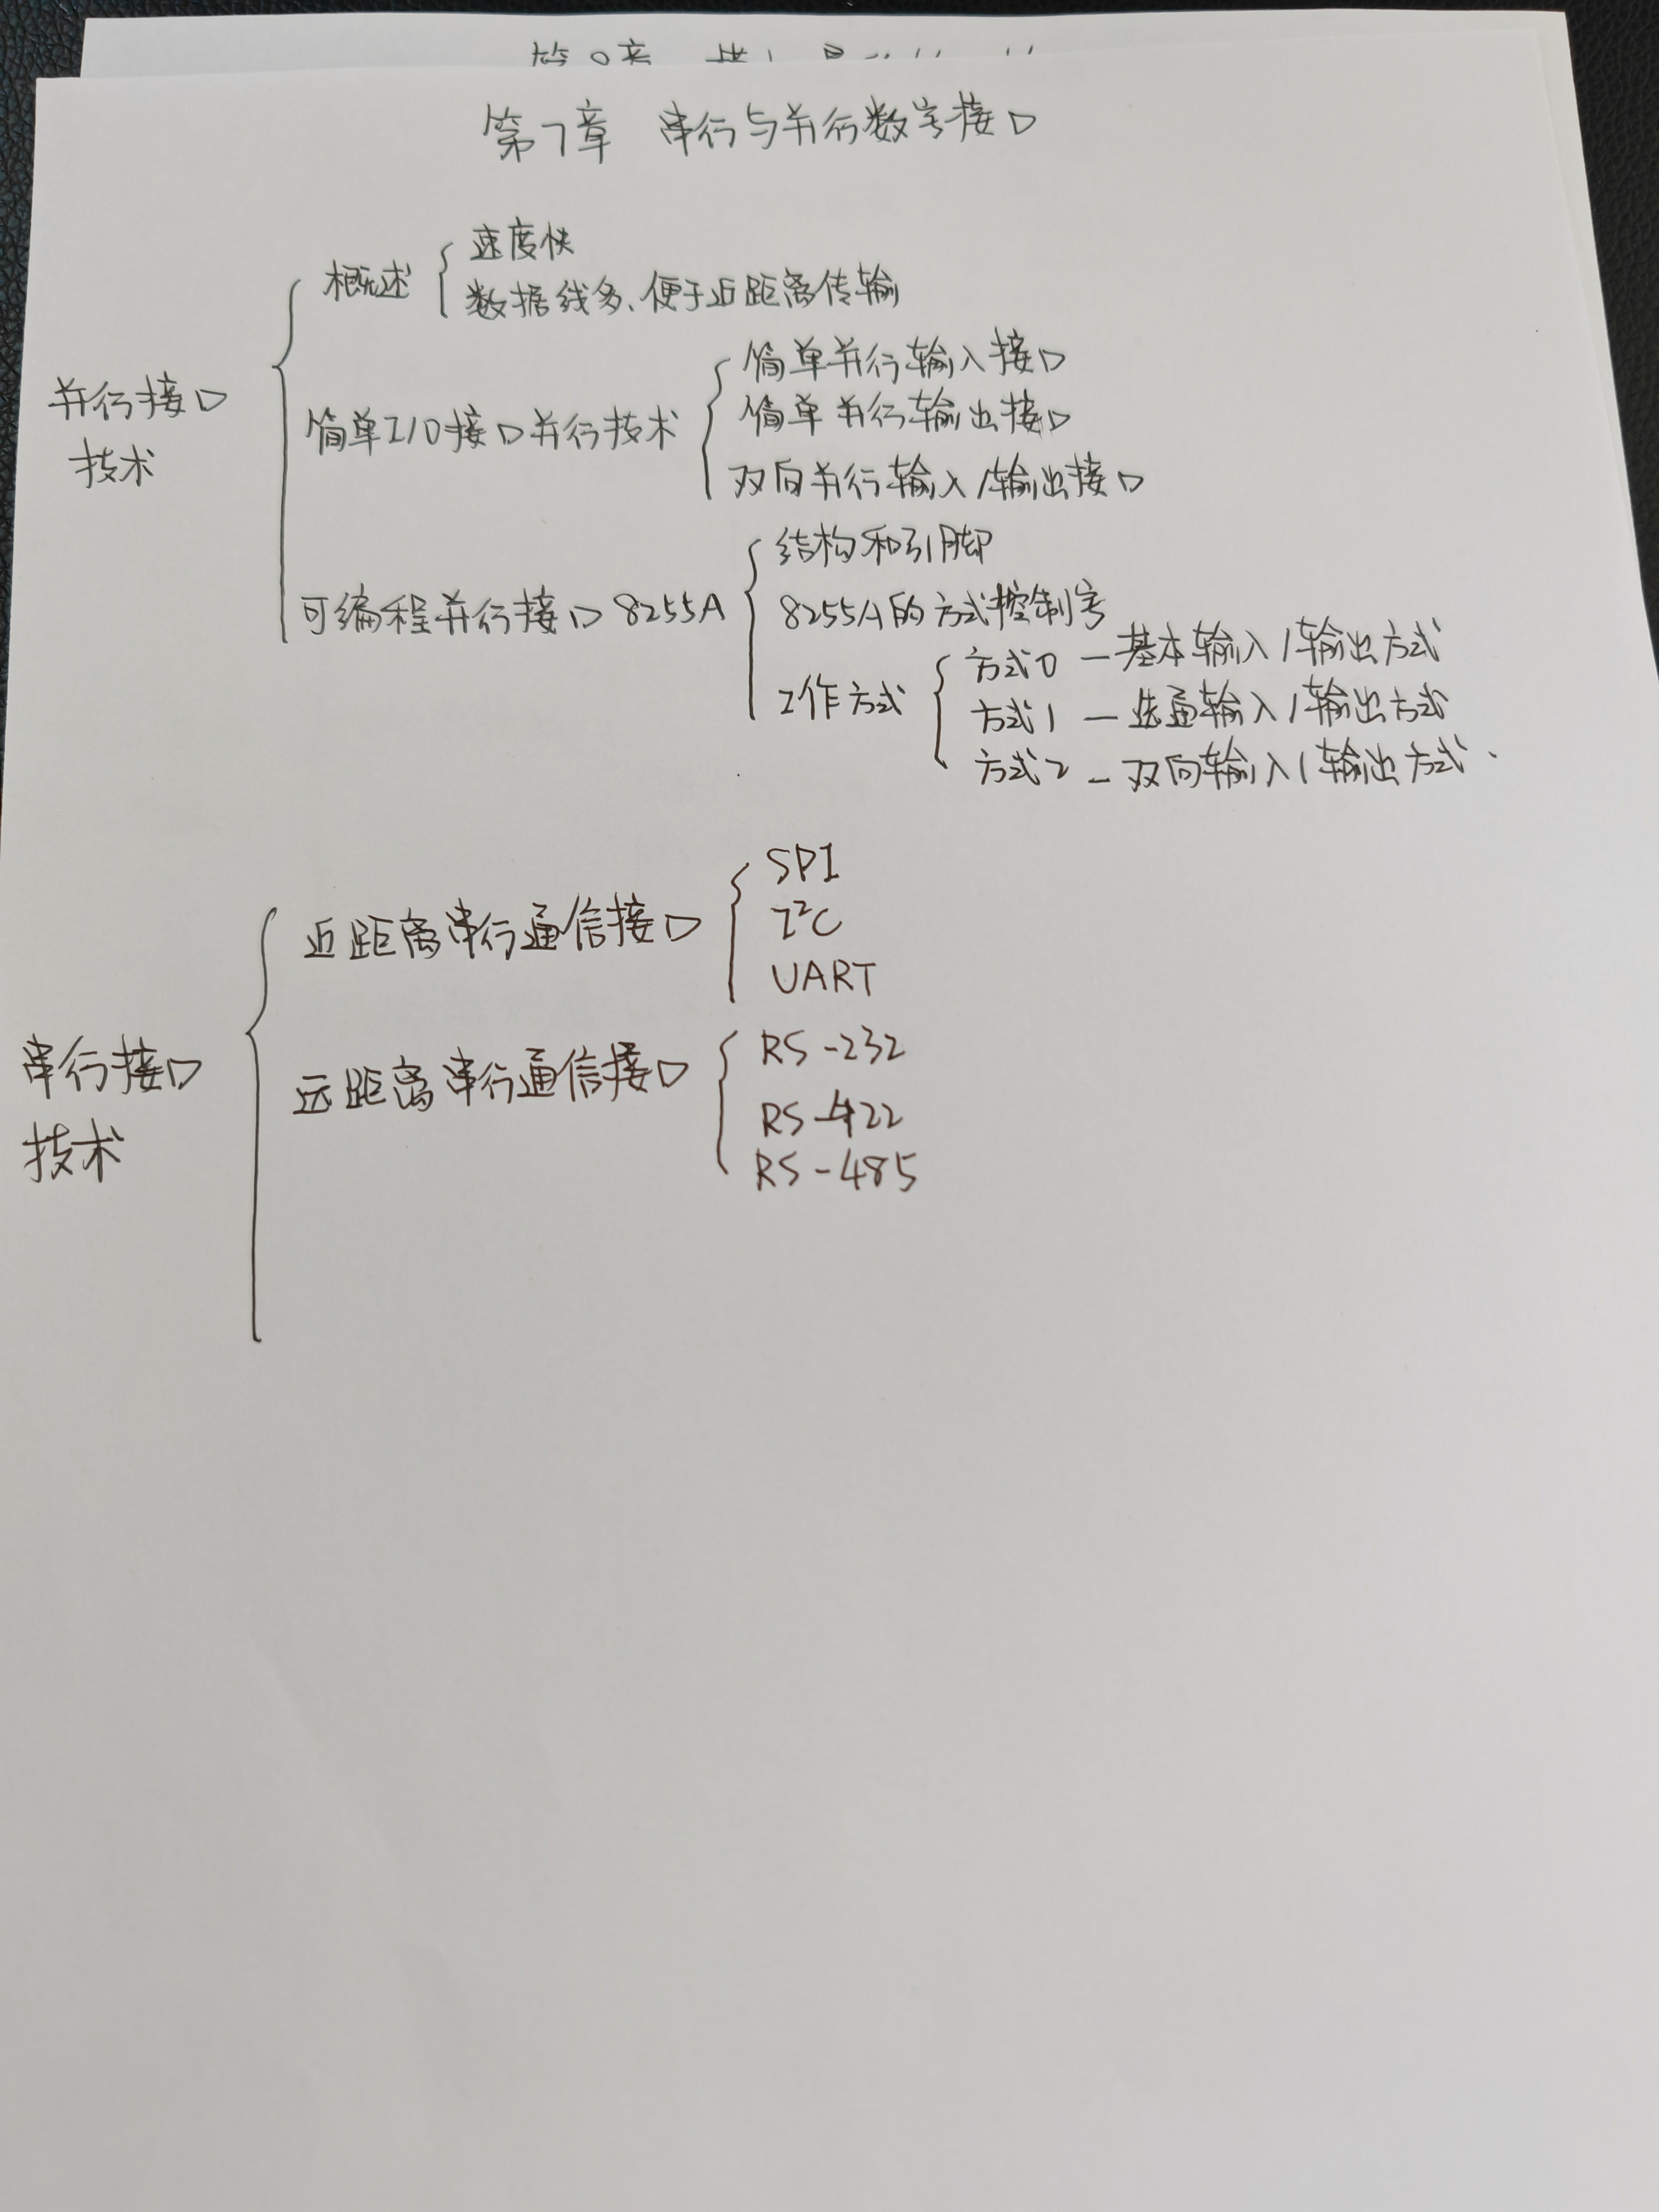 第7章 串行与并行数字接口
概述
速度快
数据线多、便于近距离传输
并行接口
技术
简单I/O接口并行技术
简单并行输入接口
简单并行输出接口
双向并行输入/输出接口
可编程并行接口8255A
结构和引脚
8255A的方式控制字
工作方式
方式0 — 基本输入/输出方式
方式1 — 选通输入/输出方式
方式2 — 双向输入/输出方式.
串行接口
技术
近距离串行通信接口
SPI
I²C
UART
远距离串行通信接口
RS-232
RS-422
RS-485